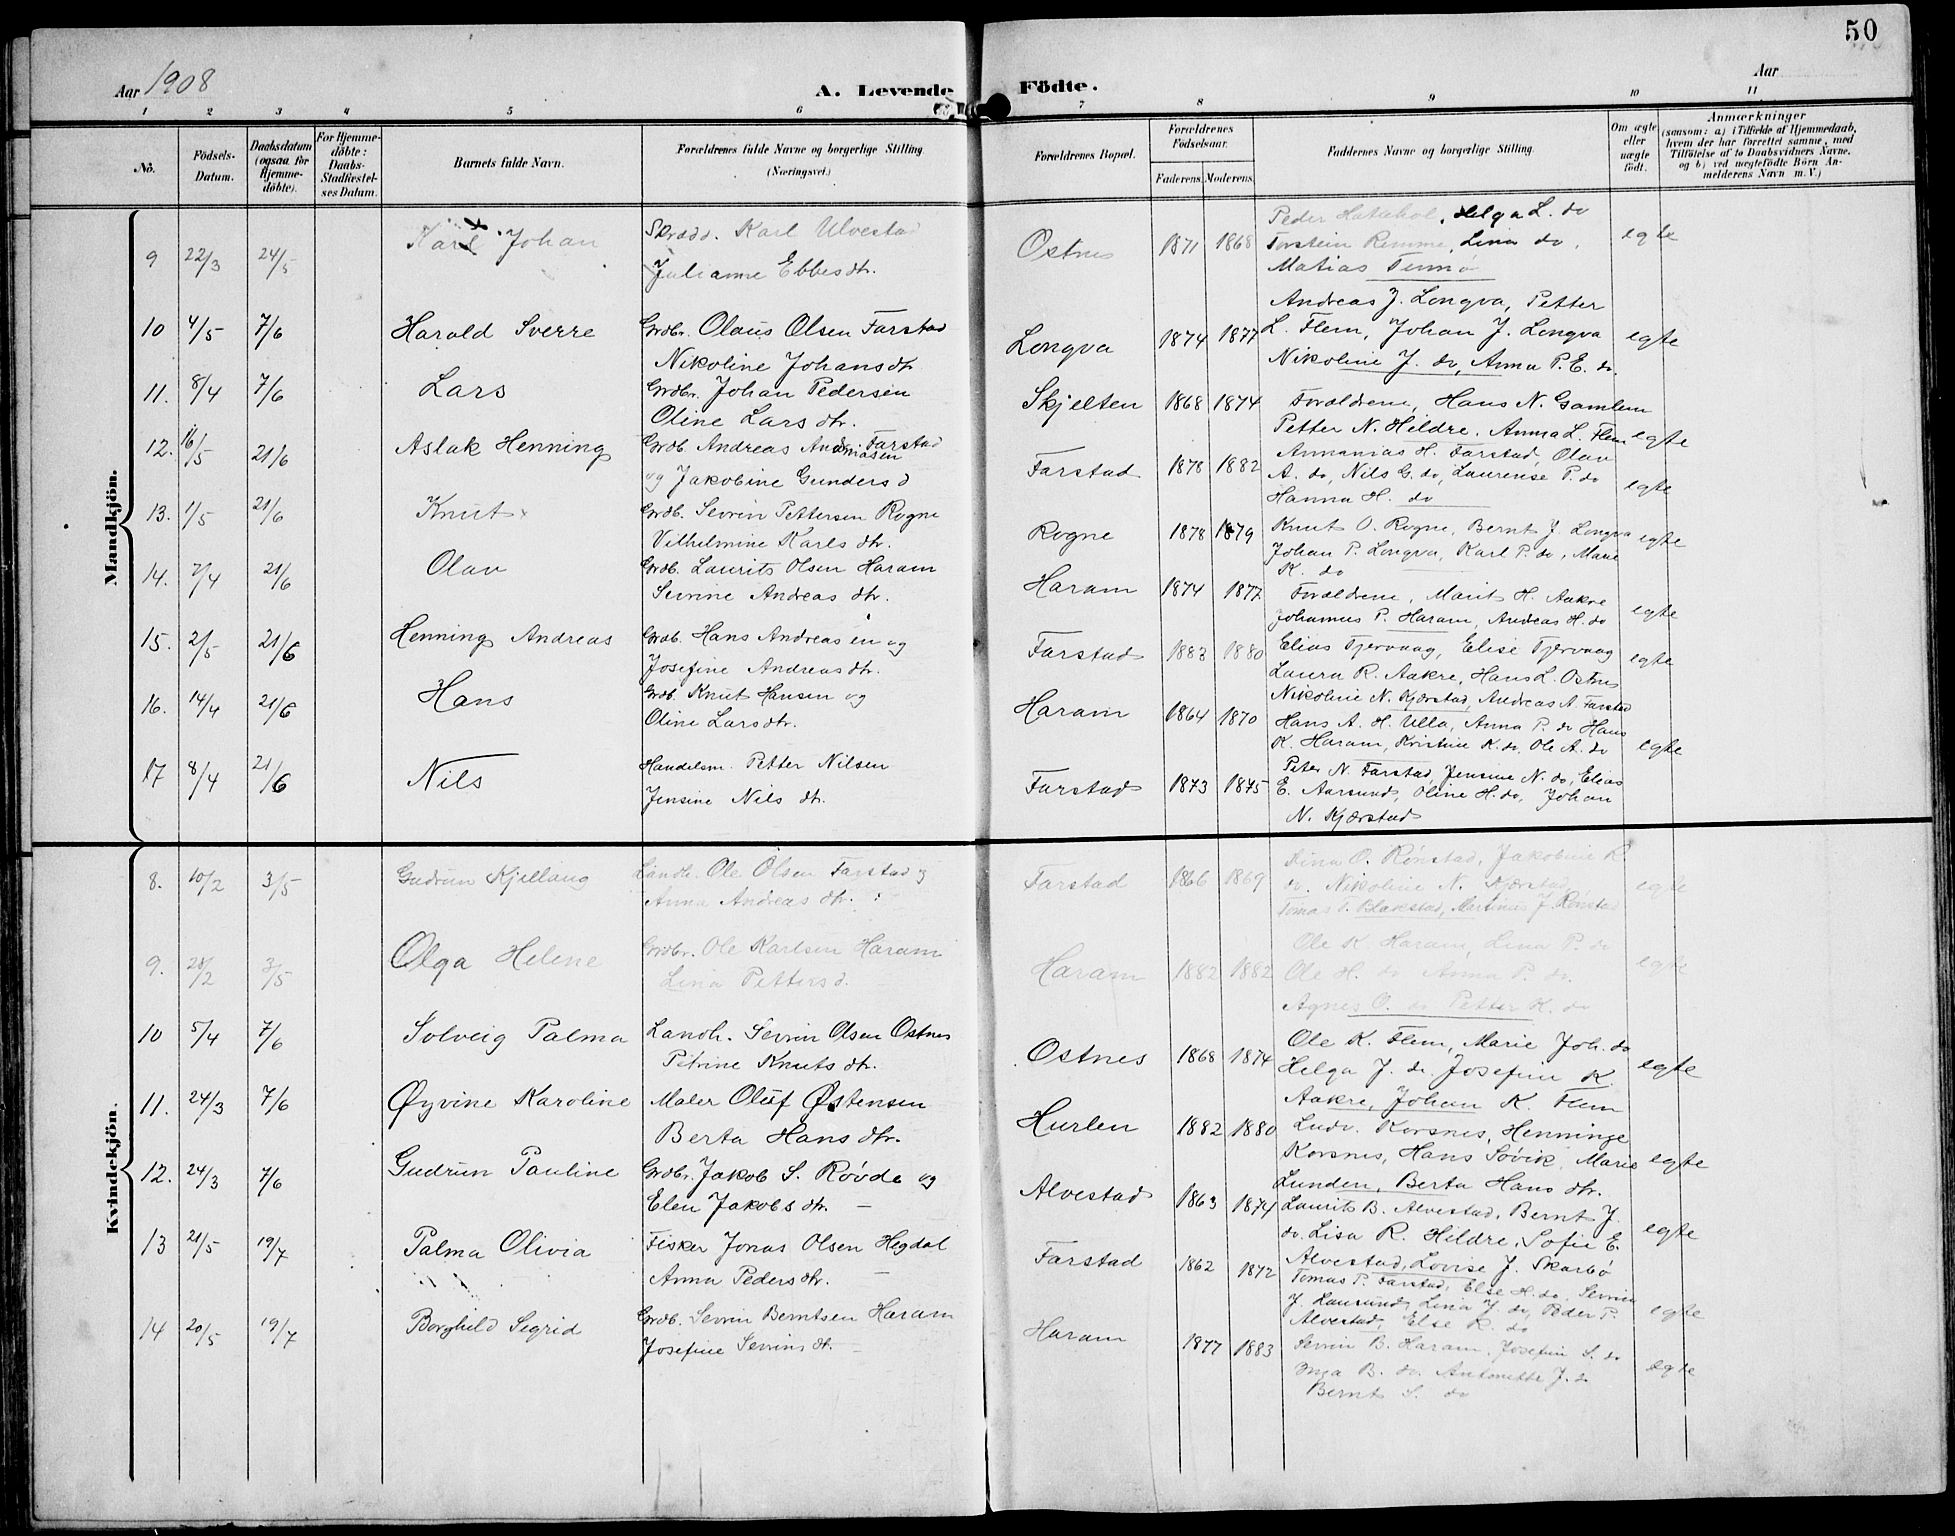 50
Aar 1908
A. Levende
Födte.
Aar
1 2 3 4 5 6 7 8 9 10 11
No.
Födsels-Datum.
Daabsdatum (ogsaa for Hjemme-döbte).
For Hjemme-döbte: Daabs-Stadfæstel-ses Datum.
Barnets fulde Navn.
Forældrenes fulde Navne og borgerlige Stilling
(Næringsvei.)
Forældrenes Bopæl.
Forældrenes Födselsaar.
Faderens. Moderens.
Faddernes Navne og borgerlige Stilling.
Om ægte eller uægte födt.
Anmærkninger
(saasom: a) i Tilfælde af Hjemmedaab,
hvem der har forrettet samme, med
Tilföielse af to Daabsvidners Navne,
og b) ved uægtefödte Börn An-
melderens Navn m. V.)
Mandkjön.
9 22/3 24/5 Karl Johan Skrædd. Karl Ulvestad
Julianne Ebbesdtr.
Ostnes 1871 1868 Peder Hatlehol, Helga L. do
Torstein Remme, Lina do,
Matias
egte
10 4/5 7/6 Harald Sverre Grdbr. Olaus Olsen Farstad
Nikoline Johansdtr
Longva 1874 1877 Andreas J. Longva, Petter
L. Flem, Johan J. Longva
Nikoline J. do, Anna P. E. do.
egte
11. 8/4 7/6 Lars Grdbr. Johan Pedersen
Oline Larsdtr.
Skjelten 1868 1874 Forældrene, Hans N. Gamlem
Petter N. Hildre. Anna L. Flem
egte
12. 16/5 21/6 Aslak Henning Grdb. Andreas Farstad
og Jakobine Gundersd
Farstad 1878 1882 Annanias H. Farstad, Olav
A. do, Nils G. do, Laurense P. do
Hanna H. do
egte
13. 1/5 21/6 Knut Grdb. Sevrin Pettersen Rogne
Vilhelmine Karlsdtr.
Rogne 1878 1879 Knut O. Rogne, Bernt J. Longva
Johan P. Longva, Karl P. do, Marie
K. do
egte
14. 7/4 21/6 Olav Grdb. Laurits Olsen Haram
Sevrine Andreasdtr.
Haram 1874 1877 Forældrene, Marit H. Aakre
Johannes P. Haram, Andreas H. do
egte
15. 2/5 21/6 Henning Andreas Grdb. Hans Andreasen og
Josefine Andreasdtr.
Farstad 1883 1880 Elias Tjervaag, Elise Tjervaag
Laura R. Aakre, Hans L. Ostnes
Nikoline N. Kjærstad, Andreas A. Farstad
egte
16. 14/4 21/6 Hans Grdb. Knut Hansen og
Oline Larsdtr.
Haram 1864 1870 Hans A. H. Ulla, Anna P. do Hans
K. Haram, Kristine K. do, Ole A. do
egte
17 8/4 21/6 Nils Handelsm. Petter Nilsen
Jensine Nilsdtr.
Farstad 1873 1875 Peter N. Farstad, Jensine N. do, Elias
E. Aarsund, Oline H. do, Johan
N. Kjærstad
Kvindekjön.
8. 10/2 3/5 Gudrun Kjellaug Landh. Ole Olsen Farstad og
Anna Andreasdtr.
Farstad 1866 1869 O. Rönstad, Jakobine R.
do. Nikoline N. Kjærstad,
Tomas T. Blakstad, Martinus J. Rönstad
egte
9. 28/2 3/5 Olga Helene Grdbr. Ole Karlsen Haram
Lina Pettersd.
Haram 1882 1882 Ole K. Haram, Lina P. do
Ole H. do Anna P. do.
Agnes O. do Petter K. do
egte
10 5/4 7/6 Solveig Palma Landh. Sevrin Olsen Ostnes
Petrine Knutsdtr.
Ostnes 1868 1874 Ole K. Flem, Marie Joh. do
Helga J. do. Josefine K.
Aakre, Johan K. Flem
egte
11. 24/3 7/6 Øyvine Karoline Maler Oluf Østensen
Berta Hansdtr.
Hurlen 1882 1880 Ludv. Korsnes, Henninge
Korsnes, Hans Søvik, Marie
Lunden, Berta Hansdtr.
egte
12. 24/3 7/6 Gudrun Pauline Grdbr. Jakob S. Røvde og
Elen Jakobsdtr.
Alvestad 1863 1874 Laurits B. Alvestad, Bernt J.
do. Lisa R. Hildre, Sofie E.
Alvestad, Lovise J. Skarbø
egte
13 21/5 19/7 Palma Olivia Fisker Jonas Olsen Hegdal
Anna Pedersdtr.
Farstad 1862 1872 Tomas P. Farstad, Else H. do, Sevrin
J. Lausund, Lina J. do, Peder P.
Alvestad, Else R. do
egte
14 20/5 19/7 Borghild Sigrid Grdb. Sevrin Berntsen Haram
Josefine Sevrinsdt.
Haram 1877 1883 Sevrin B. Haram, Josefine S. do
Inga B. do. Antonette J. do
Bernt S. do
egte